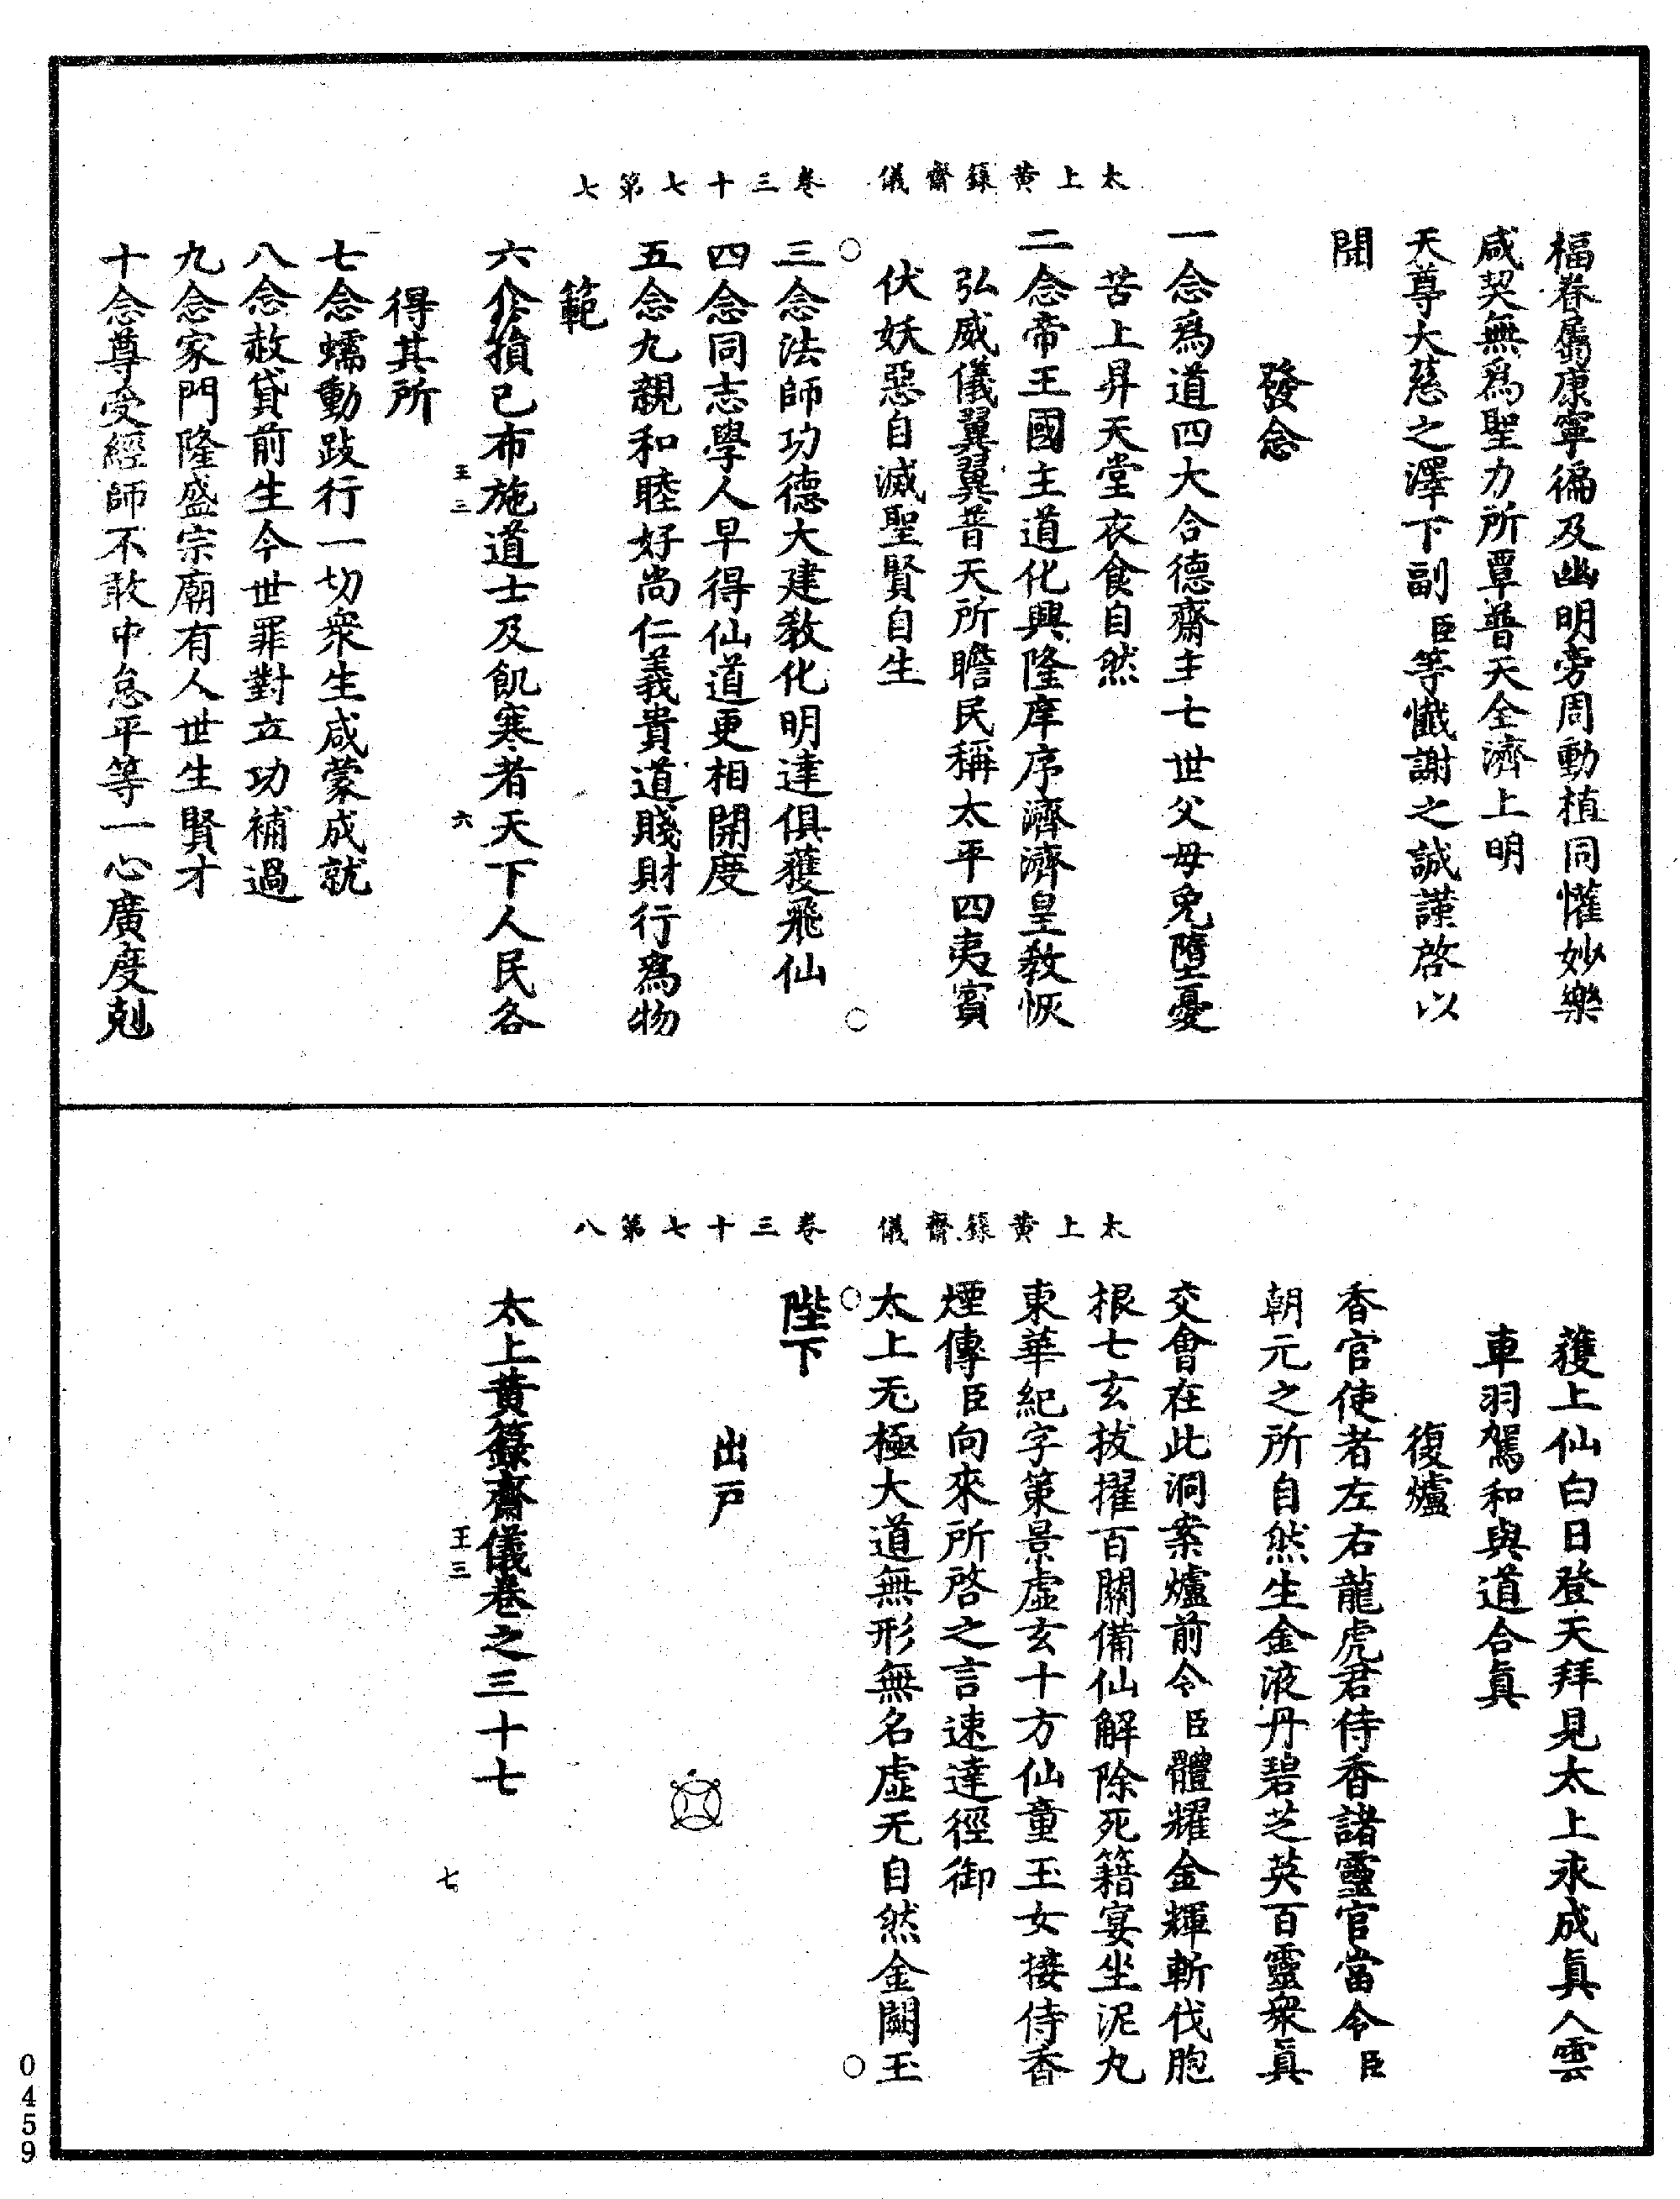 太上黃籙齋儀　卷三十七第七
福眷屬康寧徧及幽明旁周動植同懽妙樂
咸契無爲聖力所覃普天全濟上明
天尊大慈之澤下副臣等懺謝之誠謹啓以
聞
發念
一念爲道四大合德齋主七世父母免墮憂
苦上昇天堂衣食自然
二念帝王國主道化興隆庠序濟濟皇教恢
弘威儀翼翼普天所瞻民稱太平四夷賓
伏妖惡自滅聖賢自生
三念法師功德大建教化明達俱獲飛仙
四念同志學人早得仙道更相開度
五念九親和睦好尚仁義貴道賤財行爲物
範
六念損己布施道士及飢寒者天下人民各
王三　六
得其所
七念蠕動跂行一切衆生咸蒙成就
八念赦貸前生今世罪對立功補過
九念家門隆盛宗廟有人世生賢才
十念尊受經師不敢中怠平等一心廣度剋
太上黃籙齋儀　卷三十七第八
獲上仙白日登天拜見太上永成眞人雲
車羽駕和與道合眞
復爐
香官使者左右龍虎君侍香諸靈官當令臣
朝元之所自然生金液丹碧芝英百靈衆眞
交會在此洞案爐前令臣體耀金輝斬伐胞
根七玄拔擢百關備仙解除死籍宴坐泥丸
東華紀字策景虛玄十方仙童玉女接侍香
煙傳臣向來所啓之言速達徑御
太上无極大道無形無名虛无自然金闕玉
陛下
出戶
太上黃籙齋儀卷之三十七
王三　七
0459